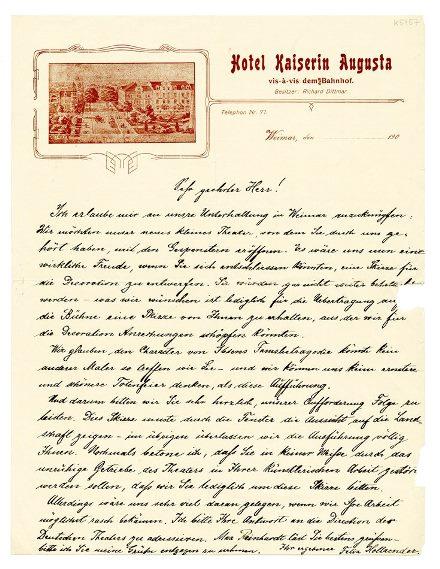 K5157
Hotel Kaiserin Augusta
vis-à-vis dem Bahnhof.
Besitzer: Richard Dittmar.
Telephon Nr. 91.
Weimar, den 190
Sehr geehrter Herr!
Ich erlaube mir an unsre Unterhaltung in Weimar anzuknüpfen:
Wir möchten unser neues kleines Theater, von dem Sie durch uns ge-
hört haben, mit den Gespenstern eröffnen. Es wäre uns nun eine
wirkliche Freude, wenn Sie sich entschliessen könnten, eine Skizze für
die Decoration zu entwerfen. Sie würden gar nicht weiter
werden – was wir wünschen ist lediglich für die Uebertragung auf
die Bühne eine Skizze von Ihnen zu erhalten, aus der wir für
die Decoration Anregungen schöpfen könnten.
Wir glauben, den Charakter von Ibsens Familientragödie könnte kein
anderer Maler so treffen wie Sie – und wir können uns keine ernstere
und schönere Totenfeier denken, als diese Aufführung.
Und darum bitten wir Sie sehr herzlich, unserer Aufforderung Folge zu
leisten. Dies Skizze müsste durch die Fenster die Aussicht auf die Land-
schaft zeigen – im übrigen überlassen wir die Ausführung völlig
Ihnen. Nochmals betone ich, daß Sie in keiner Weise durch das
unruhige Getriebe des Theaters in Ihrer künstlerischen Arbeit gestört
werden sollen, daß wir Sie lediglich um diese Skizze bitten.
Allerdings wäre uns sehr viel daran gelegen, wenn wir Ihre Arbeit
möglichst rasch bekämen. Ich bitte Ihre Antwort an die Direction des
Deutschen Theaters zu adressieren. Max Reinhardt läßt Sie bestens grüßen –
bitte ich Sie meine Grüße entgegen zu nehmen. Ihr ergebener Felix Hollaender.